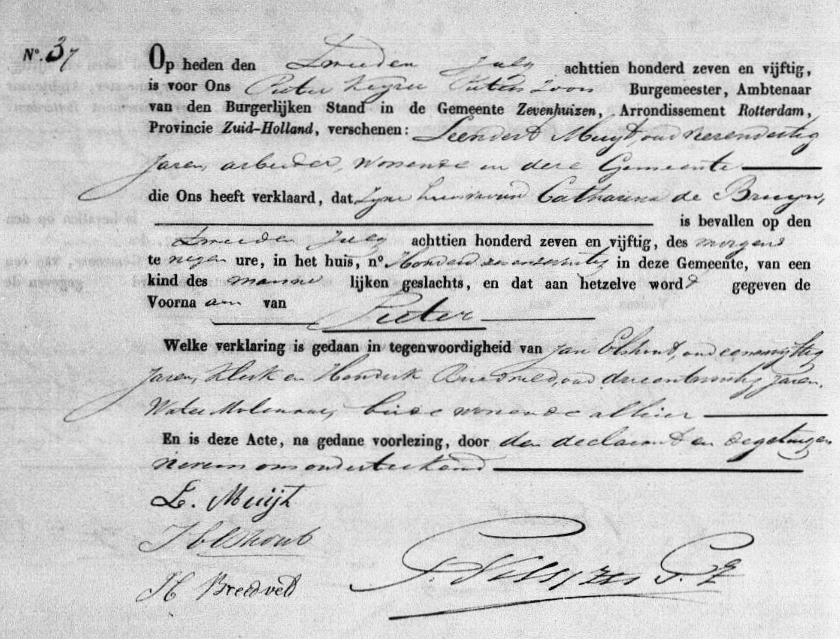 N°. 37
Op heden den Tweeden July achttien honderd zeven en vijftig,
is voor Ons Pieter Pieters Zoon Burgemeester, Ambtenaar
van den Burgerlijken Stand in de Gemeente Zevenhuizen, Arrondissement Rotterdam,
Provincie Zuid-Holland, verschenen: Leendert Muijt, oud zesendertig
Jaren, arbeider, wonende in deze Gemeente
die Ons heeft verklaard, dat zyne huisvrouw Catharina de Bruyn,
is bevallen op den
Tweeden July achttien honderd zeven en vijftig, des morgens
te negen ure, in het huis, n° Honderd in deze Gemeente, van een
kind des manne lijken geslachts, en dat aan hetzelve word gegeven de
Voorna am van Pieter
Welke verklaring is gedaan in tegenwoordigheid van Jan Elshout, oud eenenvyftig
Jaren, Klerk en Hendrik Breedveld, oud drieentwintig Jaren,
Water Molenaar, beide wonende alhier
En is deze Acte, na gedane voorlezing, door den declarant en de getuigen
nevens ons onderteekend
L. Muijt
J Elshout
H Breedveld